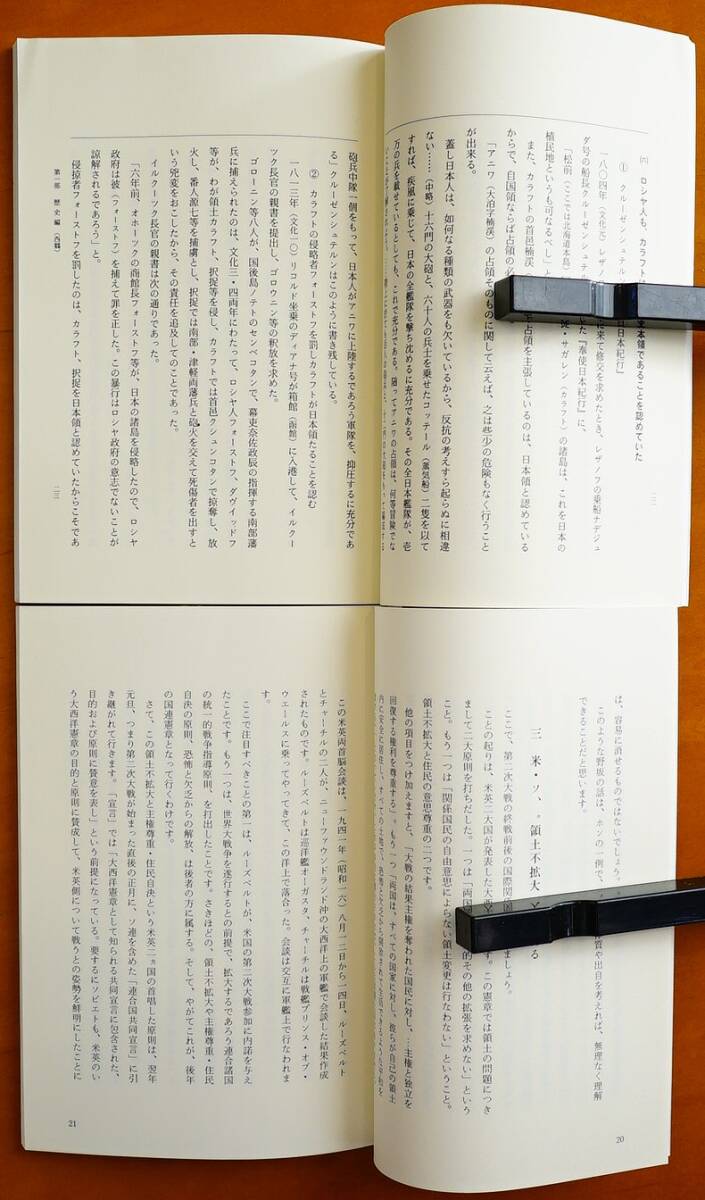 ㈥ ロシヤ人も、カラフト
本領であることを認めていた
① クルーゼンシュテル
日本紀行」
一八〇四年(文化元)レザノ
に来て修交を求めたとき、レザノフの乗船ナデジュ
ダ号の船長クルーゼンシュテ
た『奉使日本紀行』に、
「松前(ここでは北海道本島)
サガレン(カラフト)の諸島は、これを日本の
植民地というも可なるべし」と
また、カラフトの首邑楠渓
占領を主張しているのは、日本領と認めている
からで、自国領ならば占領の必
「アニワ(大泊字楠渓)の占領そのものに関して云えば、之は些少の危険もなく行うこと
が出来る。
蓋し日本人は、如何なる種類の武器をも欠いているから、反抗の考えすら起らぬに相違
ない……(中略)十六門の大砲と、六十人の兵士を乗せたコッテール(蒸気船)二隻を以て
すれば、疾風に乗じて、日本の全艦隊を撃ち沈めるに充分である。その全日本艦隊が、壱
万の兵を載せているとしても、これで充分である。随ってアニワの占領は、何等冒険でな
二二
砲兵中隊一個をもって、日本人がアニワに上陸するであろう軍隊を、抑圧するに充分であ
る」クルーゼンシュテルンはこのように書き残している。
② カラフトの侵略者フォーストフを罰しカラフトが日本領たることを認む
一八一三年(文化一〇)リコルド坐乗のディアナ号が箱館(函館)に入港して、イルクー
ツク長官の親書を提出し、ゴロウニン等の釈放を求めた。
ゴローニン等八人が、国後島ノテトのセンベコタンで、幕吏奈佐政辰の指揮する南部藩
兵に捕えられたのは、文化三・四両年にわたって、ロシヤ人フォーストフ、ダヴイッドフ
等が、わが領土カラフト、択捉等を侵し、カラフトでは首邑クシュンコタンで掠奪し、放
火し、番人源七等を捕虜とし、択捉では南部・津軽両藩兵と砲火を交えて死傷者を出すと
いう兇変をおこしたから、その責任を追及してのことであった。
イルクーツク長官の親書は次の通りであった。
「六年前、オホーツクの商館長フォーストフ等が、日本の諸島を侵略したので、ロシヤ
政府は彼(フォーストフ)を捕えて罪を正した。この暴行はロシヤ政府の意志でないことが
諒解されるであろう」と。
侵掠者フォーストフを罰したのは、カラフト、択捉を日本領と認めていたからこそであ
第一部 歴史編(西鶴)
二三
ば、容易に消せるものではないでしょう。
このような野坂の話は、ホンの一例で、
質や出自を考えれば、無理なく理解
できることだと思います。
三 米・ソ、〝領土不拡大
る
ここで、第二次大戦の終戦前後の国際関
ましょう。
ことの起りは、米英二大国が発表した大西
す。この憲章では領土の問題につき
まして二大原則を打ちだした。一つは「両国
的その他の拡張を求めない」という
こと。もう一つは「関係国民の自由意思によらない領土変更は行なわない」ということ。
領土不拡大と住民の意思尊重の二つです。
他の項目をつけ加えますと、「大戦の結果主権を奪われた国民に対し、…主権と独立を
回復する権利を尊重する」。もう一つ「両国は、すべての国家に対し、彼らが自己の領土
20
この米英両首脳会談は、一九四一年(昭和一六)八月一二日から一四日、ルーズベルト
とチャーチルの二人が、ニューファウンドランド沖の大西洋上の軍艦で会談した結果作成
されたものです。ルーズベルトは巡洋艦オーガスタ、チャーチルは戦艦プリンス・オブ・
ウェールスに乗ってやってきて、この洋上で落合った。会談は交互に軍艦上で行なわれま
す。
ここで注目すべきことの第一は、ルーズベルトが、米国の第二次大戦参加に内諾を与え
たことです。もう一つは、世界大戦争を遂行するとの前提で、拡大するであろう連合諸国
の統一的戦争指導原則、を打出したことです。さきほどの、領土不拡大や主権尊重・住民
自決の原則、恐怖と欠乏からの解放、は後者の方に属する。そして、やがてこれが、後年
の国連憲章となって行くわけです。
さて、この領土不拡大と主権尊重・住民自決という米英二ヵ国の首唱した原則は、翌年
元旦、つまり第二次大戦が始まった直後の正月に、ソ連を含めた「連合国共同宣言」に引
き継がれて行きます。「宣言」では「大西洋憲章として知られる共同宣言に包含された、
目的および原則に賛意を表し」という前提になっている。要するにソビエトも、米英のい
う大西洋憲章の目的と原則に賛成して、米英側について戦うとの姿勢を鮮明にしたことに
21